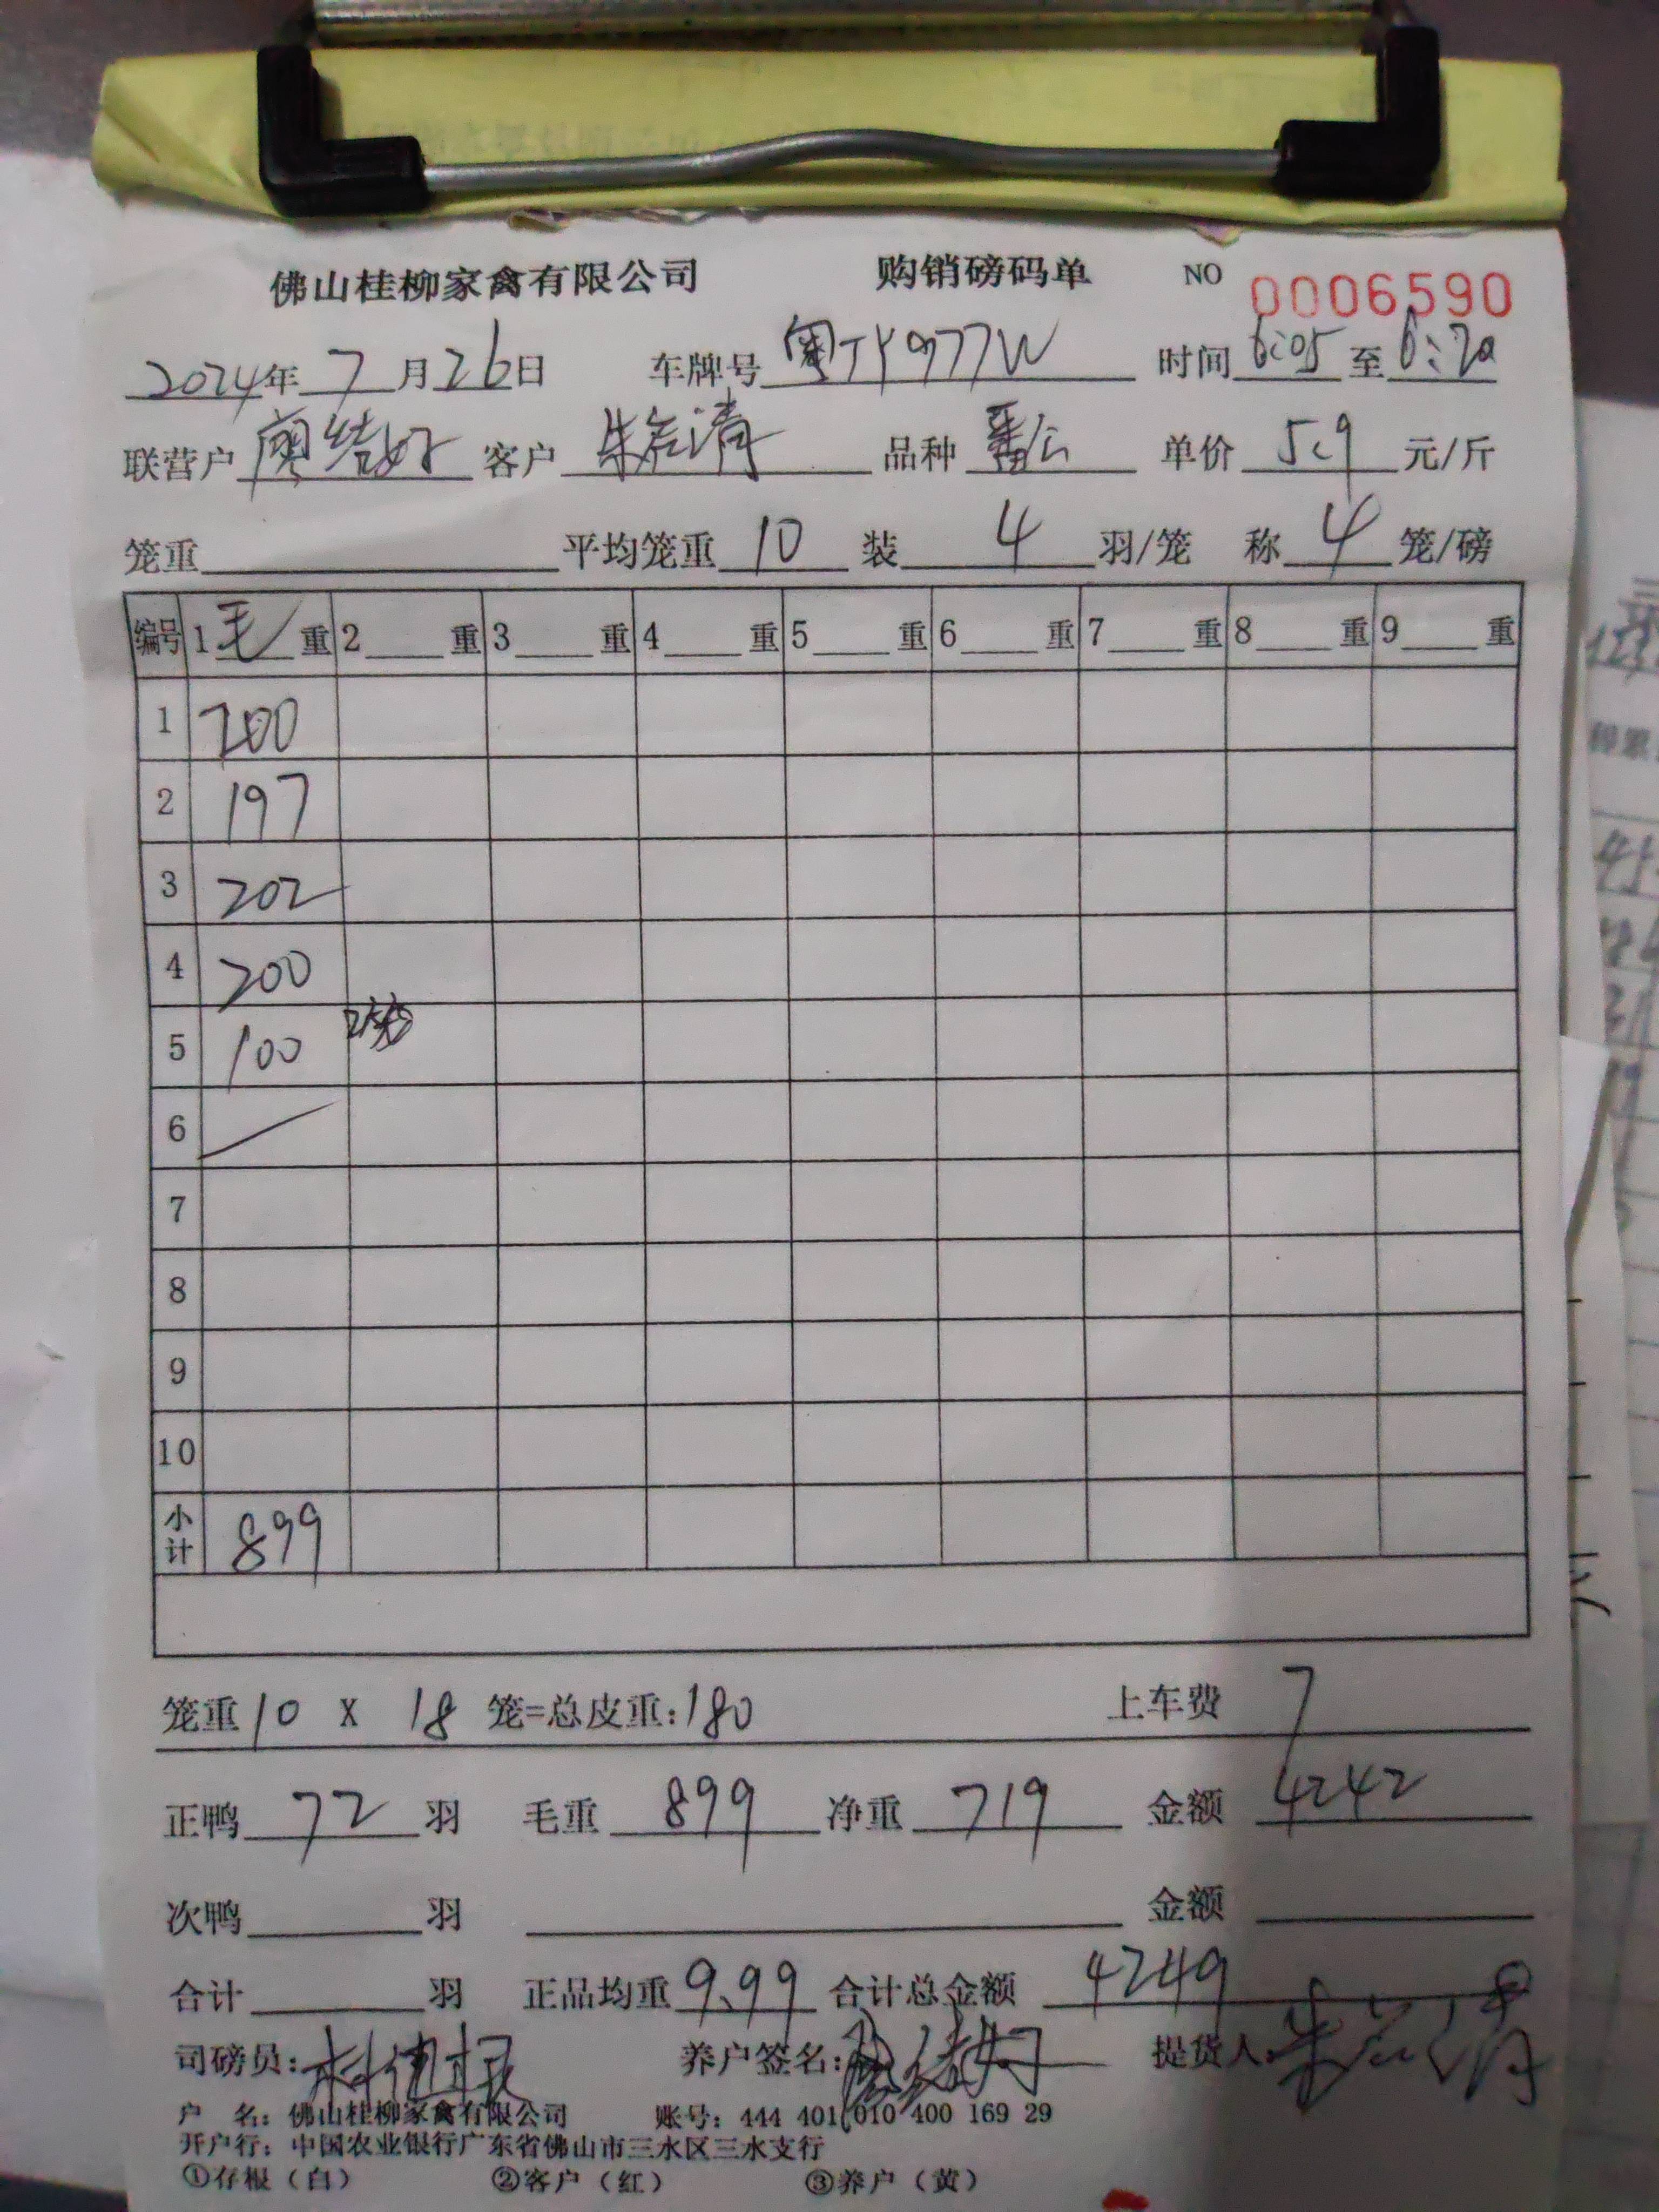 佛山桂柳家禽有限公司 购销磅码单 NO 0006590
2024年 7 月 26 日 车牌号 粤TY977W 时间 6:05 至 6:20
联营户 客户 朱 清 品种 番 单价 5.9 元/斤
笼重 平均笼重 10 装 4 羽/笼 称 4 笼/磅
编号 1 毛 重 2 重 3 重 4 重 5 重 6 重 7 重 8 重 9 重
1 200
2 197
3 202
4 200
5 100 2笼
6
7
8
9
10
小计 899
笼重 10 X 18 笼=总皮重: 180 上车费 7
正鸭 72 羽 毛重 899 净重 719 金额 4242
次鸭 羽 金额
合计 羽 正品均重 9.99 合计总金额 4249
司磅员: 养户签名: 提货人: 朱 清
户 名: 佛山桂柳家禽有限公司 账号: 444 401 010 400 169 29
开户行: 中国农业银行广东省佛山市三水区三水支行
①存根（白） ②客户（红） ③养户（黄）